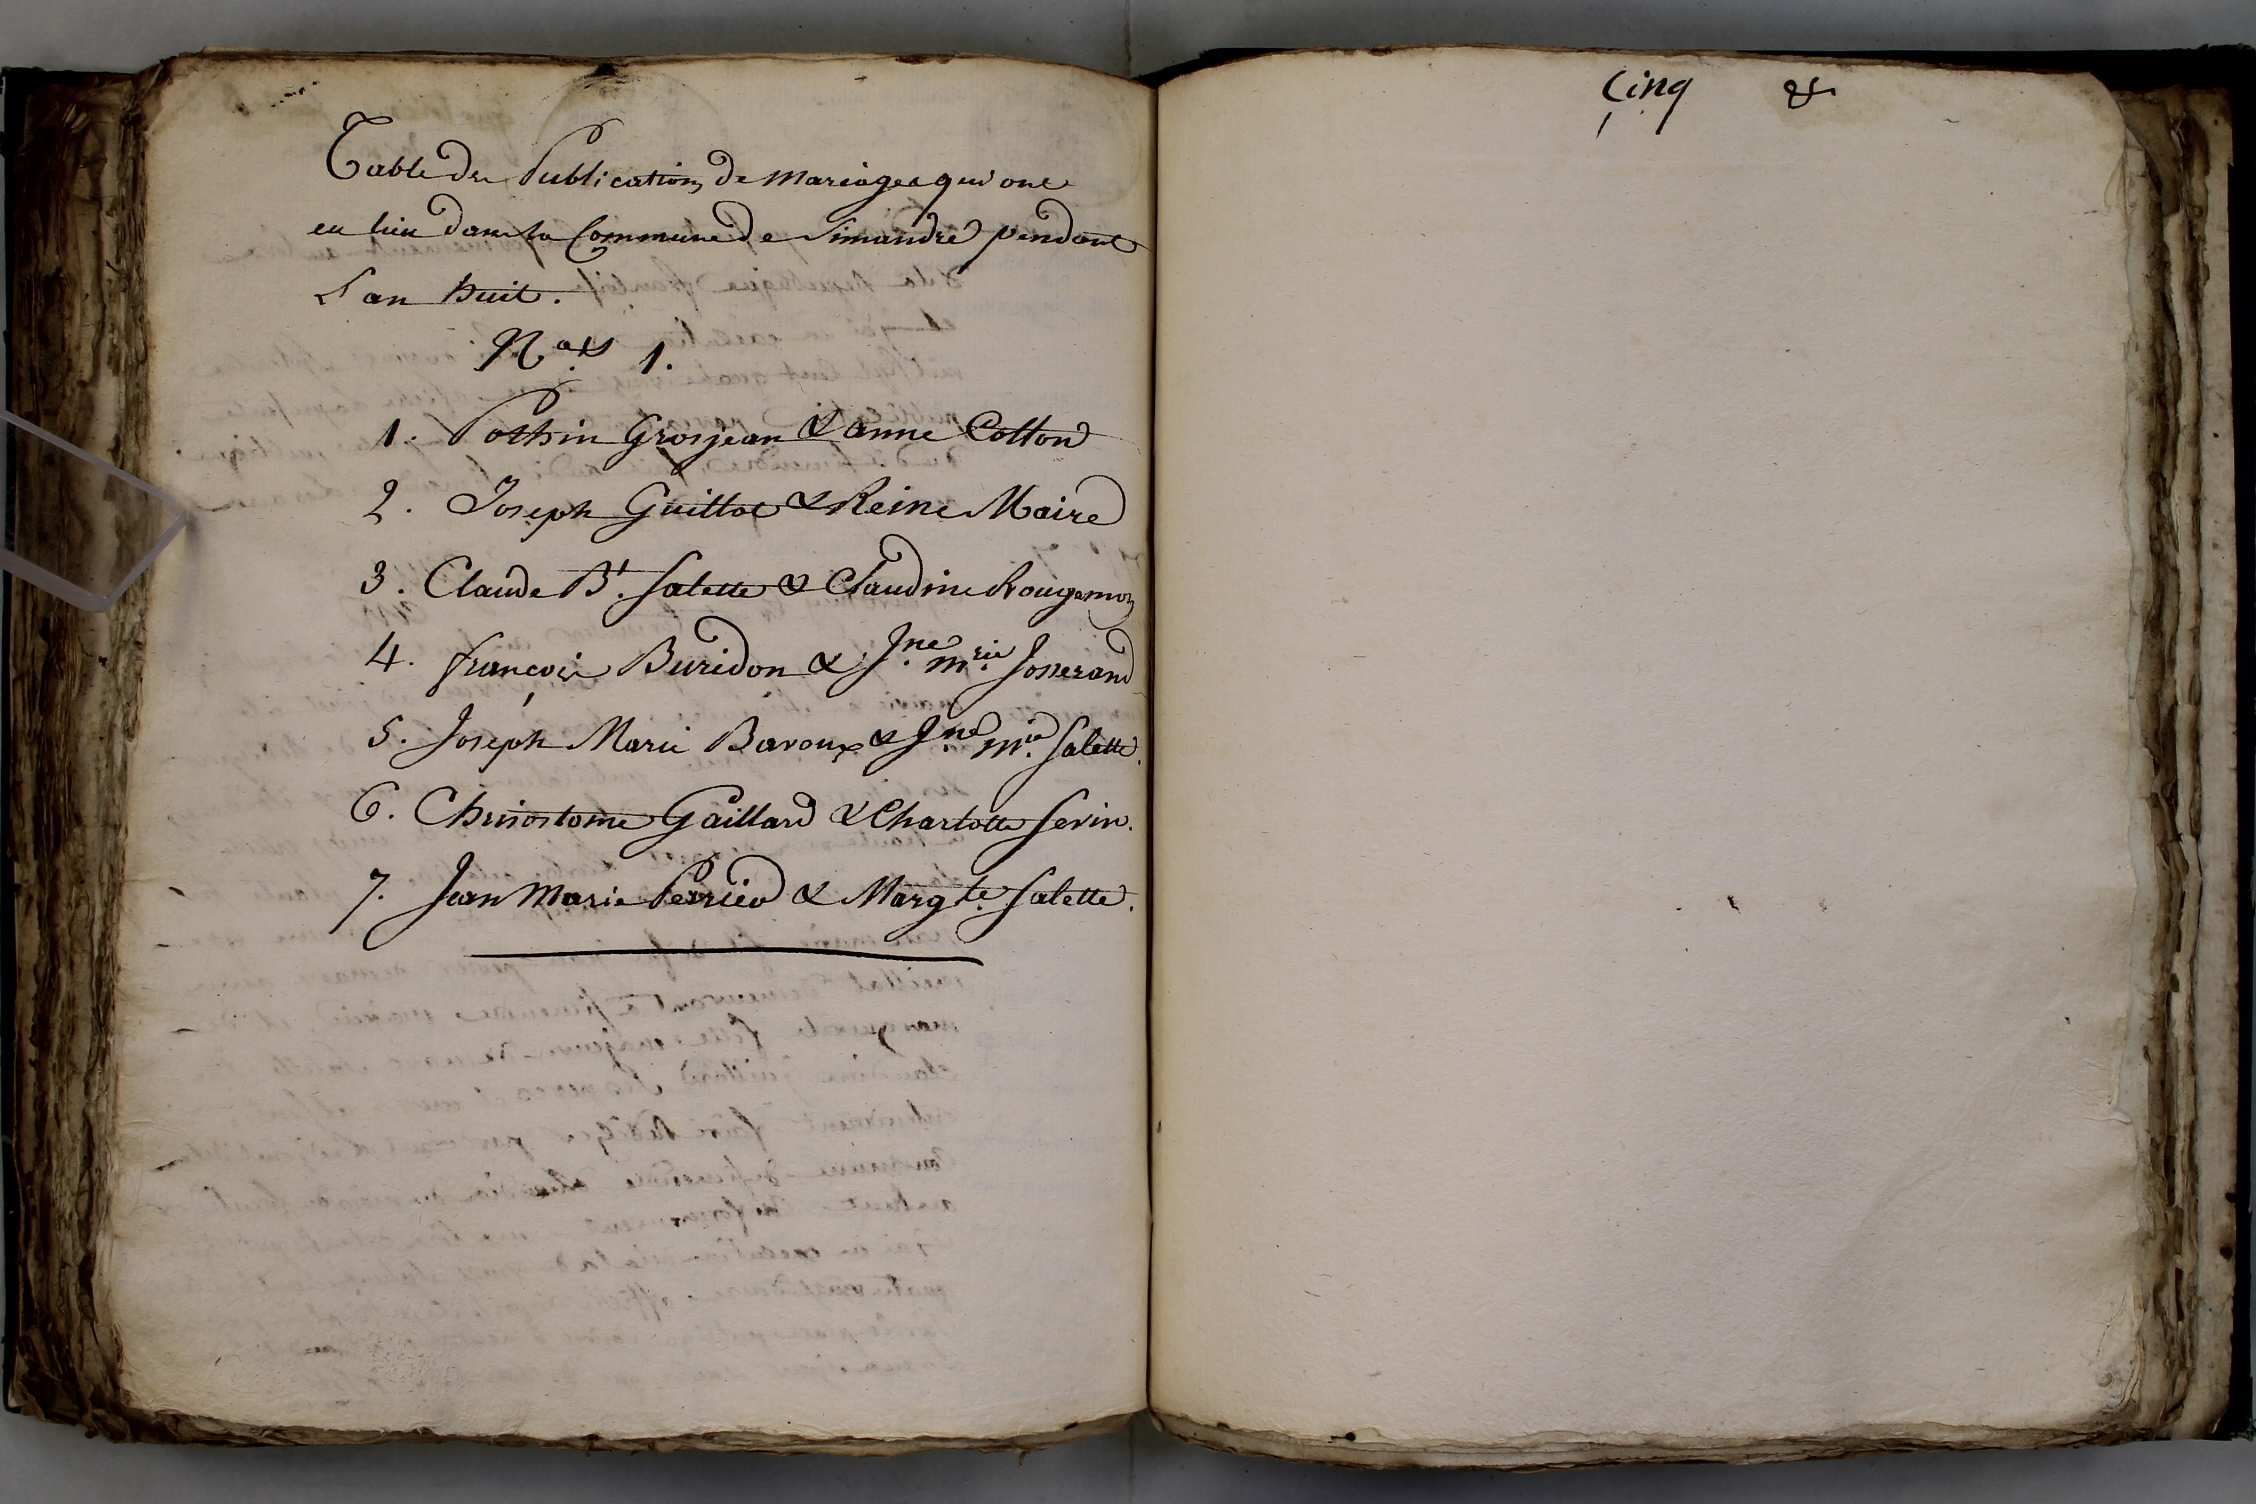 Table des Publications de Mariages qui ont
eu lieu dans la Commune de Simandre pendant
l'an huit.
N.os 1.
1. Pothin Grosjean & anne Cotton
2. Joseph Guillot & Reine Maire
3. Claude Bt. Salette & Claudine Rougemon
4. françois Buridon & Jne. mrie. Josserand
5. Joseph Marie Baroux & Jne. mie. Salette.
6. Chrisostome Gaillard & Charlotte Serin.
7. Jean Marie Perrier & Margte. Salette.
Cinq &